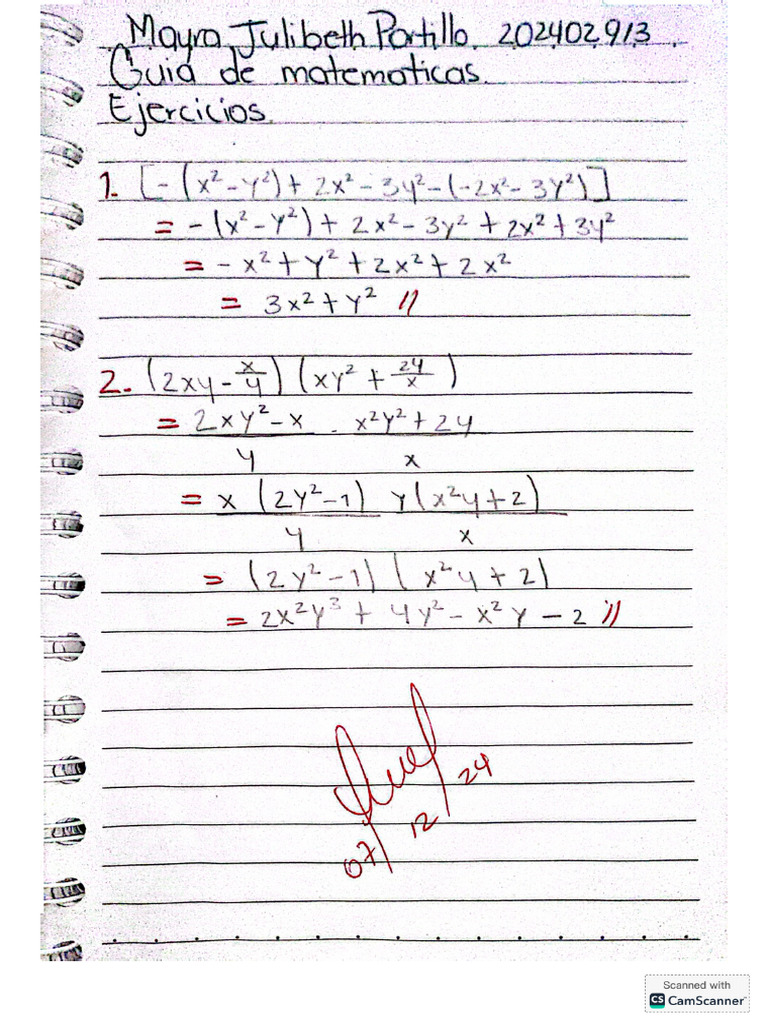 Mayra Julibeth Portillo. 202402913.
Guia de matematicas.
Ejercicios.
1. [-(x²-y²)+2x²-3y²-(-2x²-3y²)]
= -(x²-y²)+2x²-3y²+2x²+3y²
= -x²+y²+2x²+2x²
= 3x²+y² //
2. (2xy - x/y) (xy² + 2y/x)
= 2xy²-x / y · x²y²+2y / x
= x(2y²-1) / y y(x²y+2) / x
= (2y²-1) (x²y+2)
= 2x²y³ + 4y² - x²y - 2 //
07/12/24
Scanned with
CS CamScanner